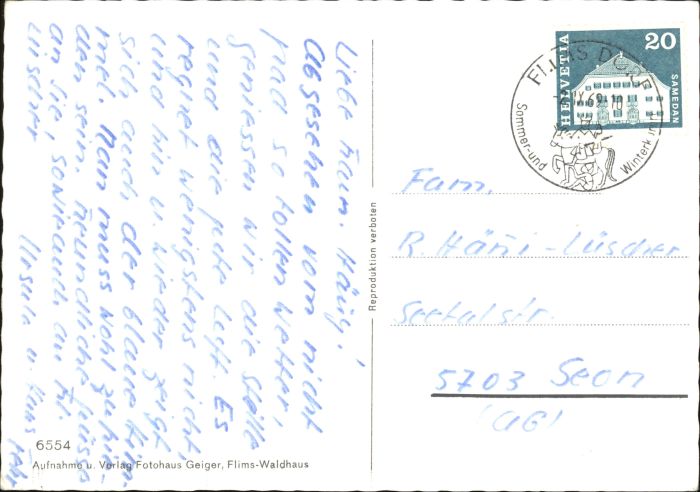 Liebe Fam. Häny!
Abgesehen vom nicht
grad so tollen Wetter,
geniessen wir die Stille
und die gute Luft. Es
regnet wenigstens nicht,
und hin u. wieder zeigt
sich auch der blaue Him-
mel. Man muss wohl zufrie-
den sein. Freundliche Grüsse
an Sie, sowie auch an Frl.
Ursula u. Hans
6554
Aufnahme u. Verlag Fotohaus Geiger, Flims-Waldhaus
Reproduktion verboten
HELVETIA
20
SAMEDAN
FLIMS DORF
IX.69.10
Sommer- und
Winterk
Fam.
R. Häni-Lüscher
Seetalstr.
5703 Seon
(AG)